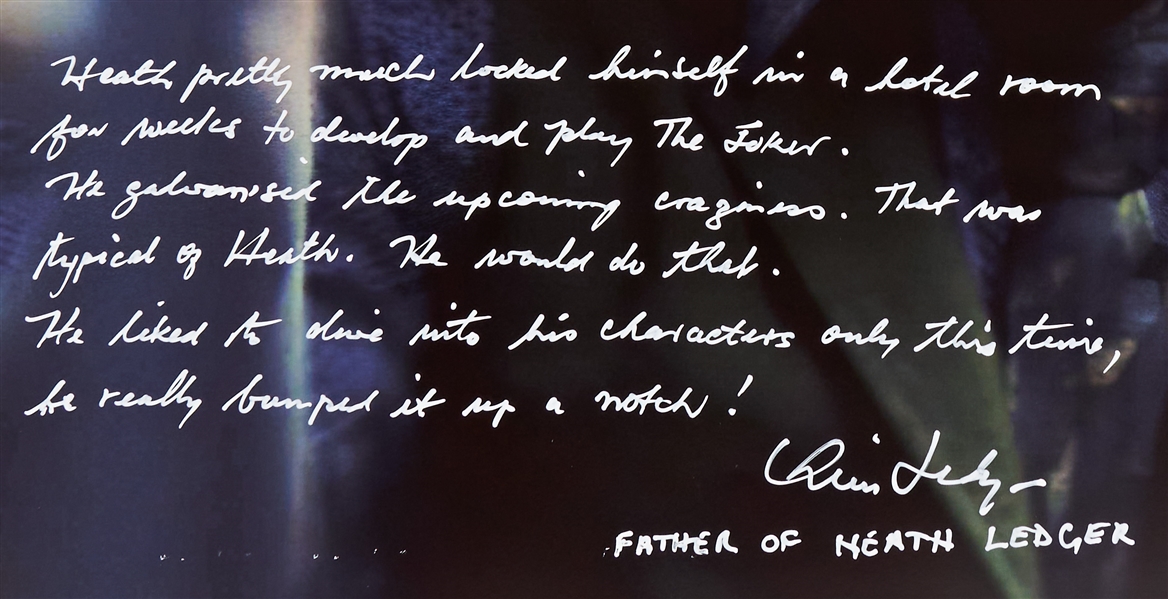 Heath pretty much locked himself in a hotel room
for weeks to develop and play The Joker.
He galvanised the upcoming craziness. That was
typical of Heath. He would do that.
He liked to dive into his characters only this time,
he really bumped it up a notch!
FATHER OF HEATH LEDGER